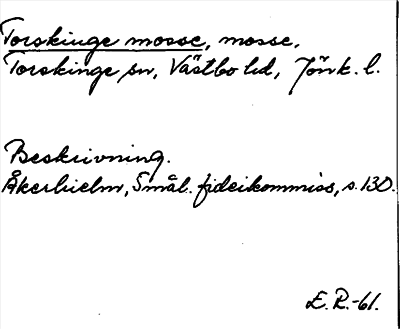 Torskinge mosse, mosse,
Torskinge sn, Västbo hd, Jönk. l.
Beskrivning.
Åkerhielm, Smål. fideikommiss, s. 130.
E. R.-61.